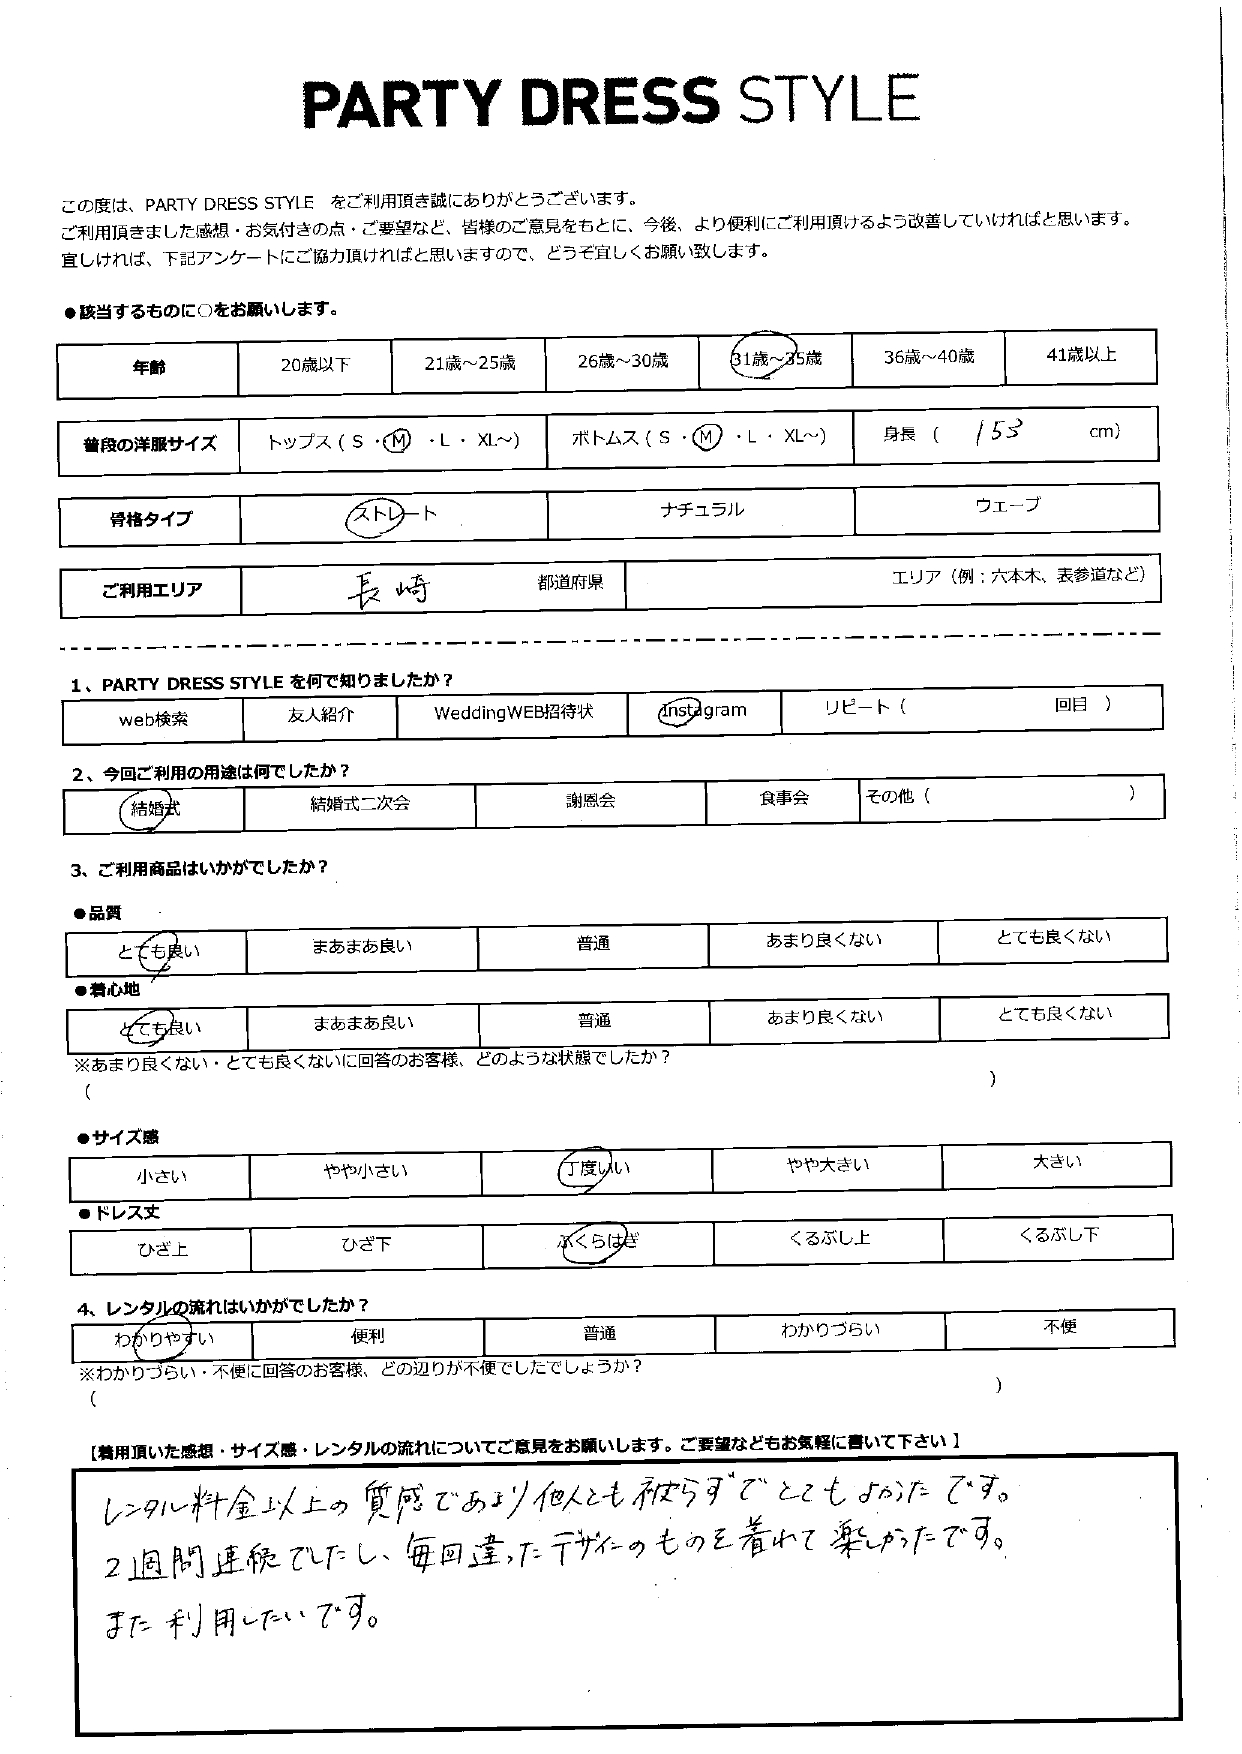 PARTY DRESS STYLE
この度は、PARTY DRESS STYLE をご利用頂き誠にありがとうございます。
ご利用頂きました感想・お気付きの点・ご要望など、皆様のご意見をもとに、今後、より便利にご利用頂けるよう改善していければと思います。
宜しければ、下記アンケートにご協力頂ければと思いますので、どうぞ宜しくお願い致します。
●該当するものに○をお願いします。
年齢 20歳以下 21歳～25歳 26歳～30歳 31歳～35歳 36歳～40歳 41歳以上
普段の洋服サイズ トップス ( S ・M ・L ・ XL～) ボトムス ( S ・M ・L ・ XL～) 身長 ( 153 cm)
骨格タイプ ストレート ナチュラル ウェーブ
ご利用エリア 長崎 都道府県 エリア（例：六本木、表参道など）
1、PARTY DRESS STYLE を何で知りましたか？
web検索 友人紹介 WeddingWEB招待状 Instagram リピート ( 回目 )
2、今回ご利用の用途は何でしたか？
結婚式 結婚式二次会 謝恩会 食事会 その他 ( )
3、ご利用商品はいかがでしたか？
●品質
とても良い まあまあ良い 普通 あまり良くない とても良くない
●着心地
とても良い まあまあ良い 普通 あまり良くない とても良くない
※あまり良くない・とても良くないに回答のお客様、どのような状態でしたか？
( )
●サイズ感
小さい やや小さい 丁度いい やや大きい 大きい
●ドレス丈
ひざ上 ひざ下 ふくらはぎ くるぶし上 くるぶし下
4、レンタルの流れはいかがでしたか？
わかりやすい 便利 普通 わかりづらい 不便
※わかりづらい・不便に回答のお客様、どの辺りが不便でしたでしょうか？
( )
【着用頂いた感想・サイズ感・レンタルの流れについてご意見をお願いします。ご要望などもお気軽に書いて下さい 】
レンタル料金以上の質感であまり他人とも被らずでとてもよかったです。
2週間連続でしたし、毎回違ったデザインのものを着れて楽しかったです。
また利用したいです。